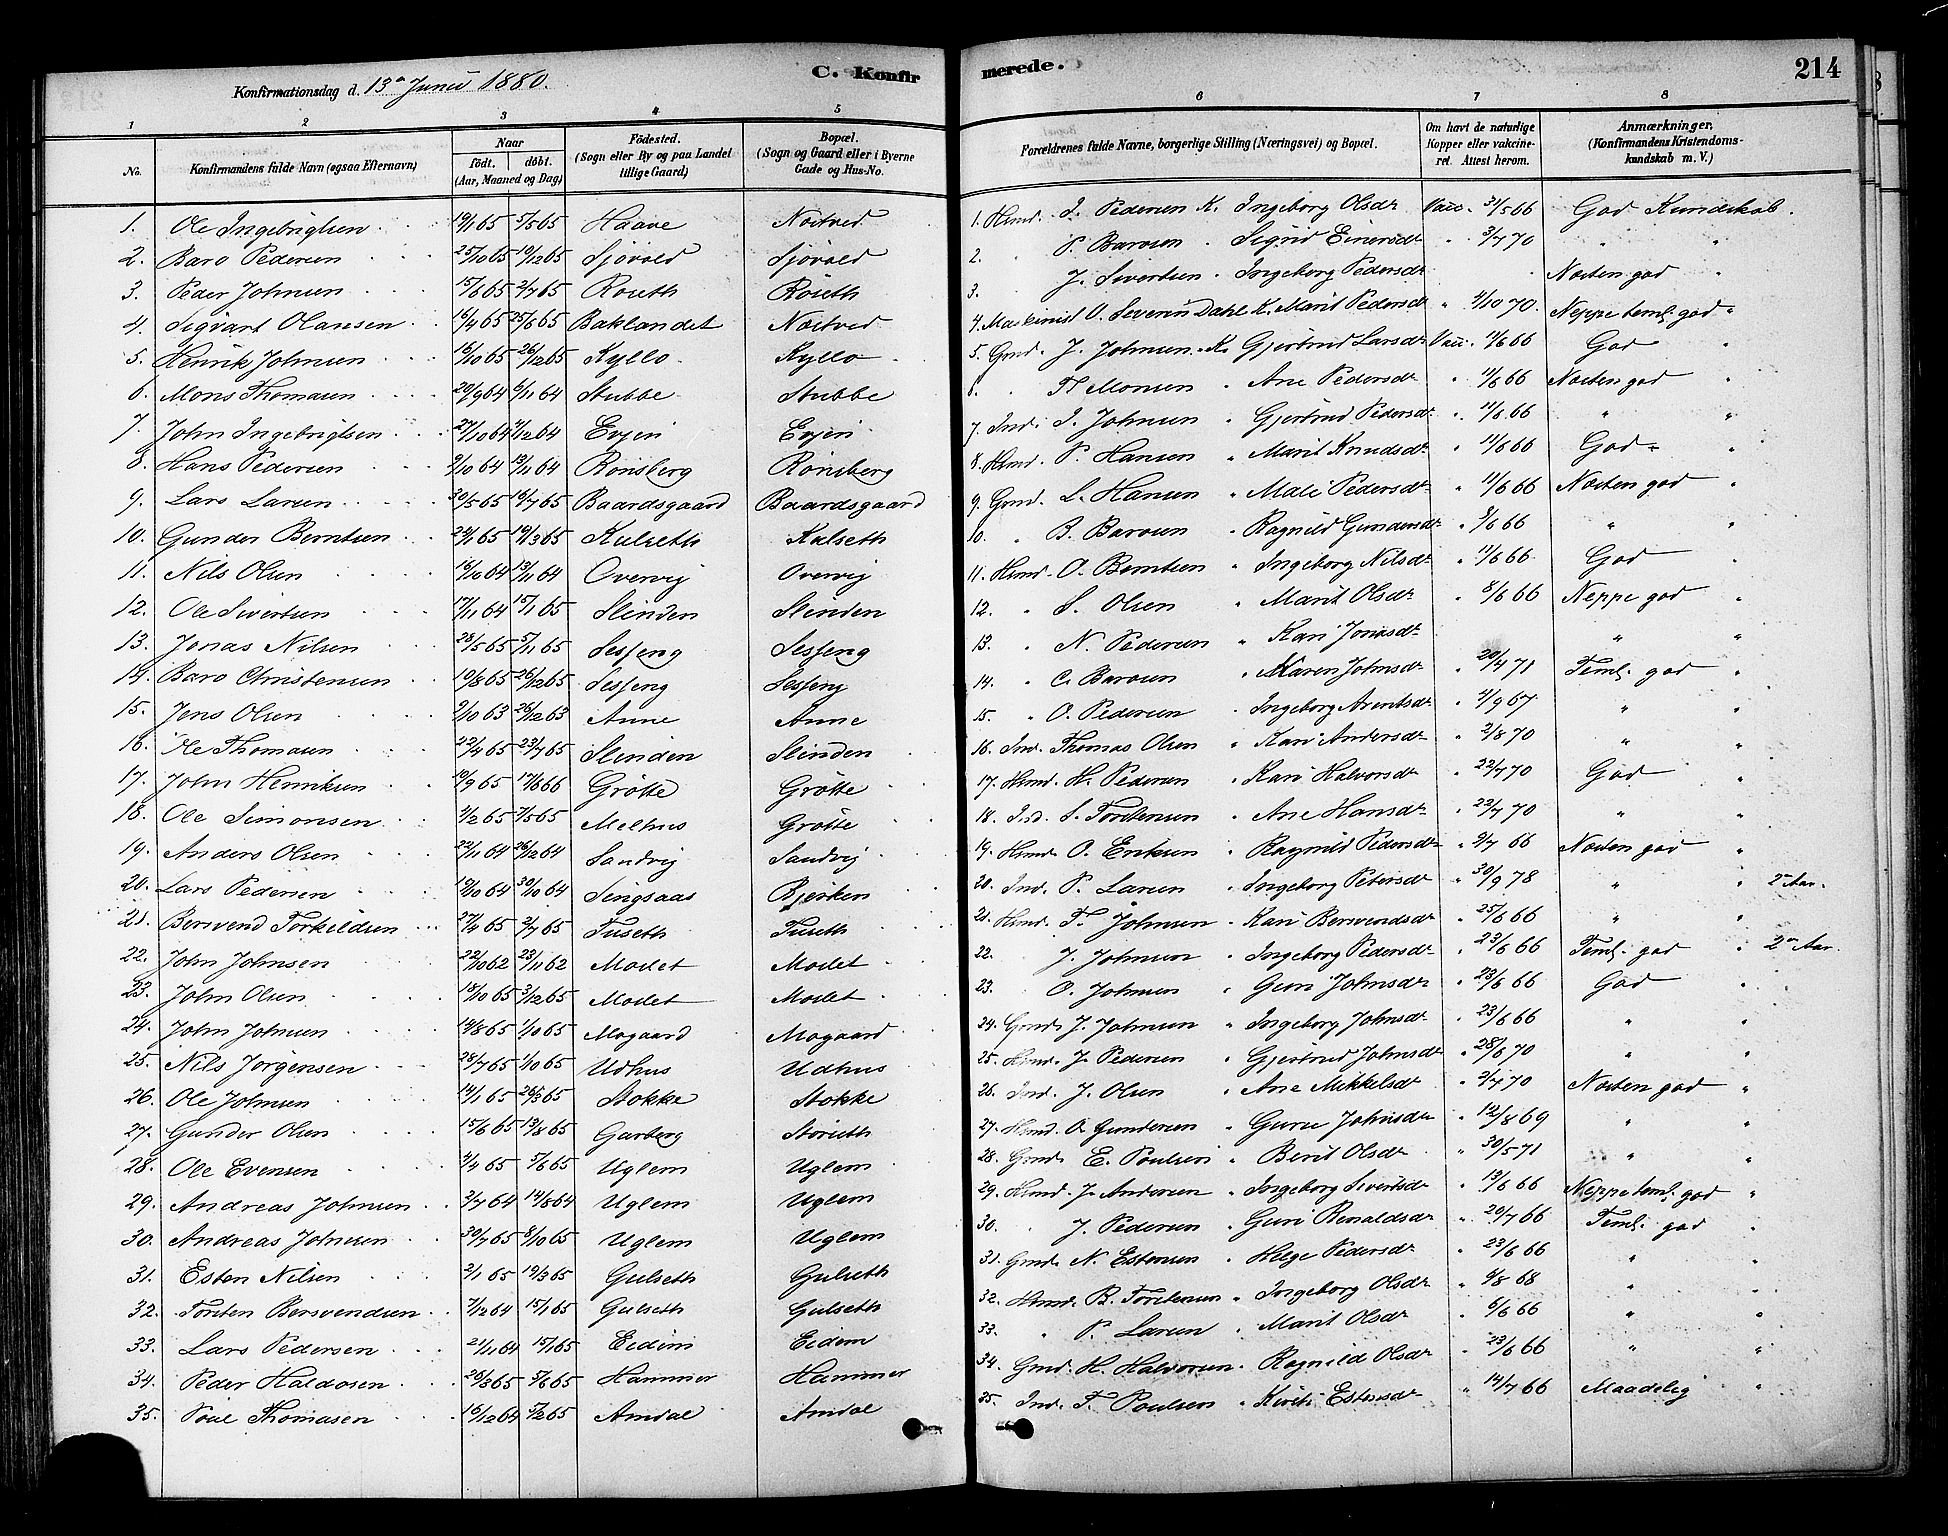 Konfirmationsdag d. 13de Juni 1880.
C. Konfirmerede.
214
1 2 3 4 5 6 7 8
No.
Konfirmandens fulde Navn (ogsaa Efternavn)
Naar
født. døbt.
(Aar, Maaned og Dag)
Födested.
(Sogn eller By og paa Landet tillige Gaard)
Bopæl.
(Sogn og Gaard eller i Byerne Gade og Hus-No.
Forældrenes fulde Navne, borgerlige Stilling (Næringsvei) og Bopæl.
Om havt de naturlige Kopper eller vaccineret. Attest herom.
Anmærkninger.
(Konfirmandens Kristendomskundskab m. V.)
1. Ole Ingebrigtsen 19/1 65 5/5 65 Haave Nostved 1. Hmd. I. Pedersen K. Ingeborg Olsdr Vacc. 31/5 66 God Kundskab.
2. Baro Pedersen 25/10 65 19/12 65 Sjøvold Sjøvold 2. " P. Barosen " Sigrid Einersdr " 3/7 70 " "
3. Peder Johnsen 15/6 65 2/7 65 Røseth Røseth 3. " J. Sivertsen " Ingeborg Pedersdr " Næsten god "
4. Sigvart Olausen 16/4 65 25/6 65 Baklandet Nostved 4. Maskinist O. Severin Dahl K. Marit Pedersdr " 4/10 70. Neppe teml. god "
5. Henrik Johnsen 16/10 65 26/12 65 Kyllo Kyllo 5. Gmd. J. Johnsen K. Gjertrud Larsdr Vacc. 11/6 66 God "
6. Mons Thomasen 20/9 64 6/11 64 Stubbe Stubbe 6. " Th Monsen " Ane Pedersdr " 11/6 66 Næsten god "
7. John Ingebrigtsen 27/10 64 4/12 64 Evjen Evjen 7. Ind. I. Johnsen " Gjertrud Pedersdr " 11/6 66 " "
8. Hans Pedersen 9/10 64 13/11 64 Rønsberg Rønsberg 8. Hmd. P. Hansen " Marit Knudsdr " 11/6 66 God "
9. Lars Larsen 30/5 65 16/7 65 Baardsgaard Baardsgaard 9. Gmd. L. Hansen " Mali Pedersdr " 11/6 66 Næsten god "
10. Gunder Berntsen 24/1 65 19/3 65 Kulseth Kalseth 10. " B. Barosen " Ragnild Gundersdr " 8/6 66 " "
11. Nils Olsen 16/10 64 13/11 64 Overvig Overvig 11. Hmd. O. Berntsen " Ingeborg Nilsdr " 11/6 66 God "
12. Ole Sivertsen 17/11 64 15/1 65 Slinden Slenden 12. " S. Olsen " Marit Olsdr " 8/6 66 Neppe god "
13. Jonas Nilsen 28/5 65 5/11 65 Sesseng Sesseng 13. " N. Pedersen " Kari Jonasdr " "
14. Baro Christensen 19/8 65 26/12 65 Sesseng Sesseng 14. " C. Barosen " Karen Johnsdr " 20/4 71 Teml. god "
15. Jens Olsen 9/10 63 26/12 63 Anne Anne 15. " O. Pedersen " Ingeborg Arentsdr " 2/9 67 " "
16. Ole Thomasen 22/4 65 23/7 65 Slinden Slinden 16. Ind. Thomas Olsen " Kari Andersdr " 2/8 70 " "
17. John Henriksen 19/9 65 17/6 66 Grøtte Grøtte 17. Hmd. H. Pedersen " Kari Halvorsdr " 22/7 70 God "
18. Ole Simonsen 2/2 65 7/5 65 Melhus Grøtte 18. Ind. S. Torstensen " Ane Hansdr " 22/7 70 " "
19. Anders Olsen 22/11 64 26/12 64 Sandvig Sandvig 19. Hmd. O. Eriksen " Ragnild Pedersdr " 9/7 66 Næsten god "
20. Lars Pedersen 19/10 64 30/10 64 Singsaas Bjerken 20. Ind. P. Larsen " Ingeborg Petersdr " 30/9 78 " " 2det Aar.
21. Bersvend Torkildsen 27/4 65 2/7 65 Fuseth Fuseth 21. Hmd. T. Johnsen " Kari Bersvendsdr " 25/6 66 " "
22. John Johnsen 22/10 62 23/11 62 Modet Modet 22. J. Johnsen " Ingeborg Pedersdr " 23/6 66 Teml. god " 2det Aar.
23. John Olsen 15/10 65 3/12 65 Modet Modet 23. O. Johnsen " Guri Johnsdr " 23/6 66 God "
24. John Johnsen 14/8 65 1/10 65 Mogaard Mogaard 24. Gmd. J. Johnsen " Ingeborg Johnsdr " 23/6 66 " "
25. Nils Jørgensen 28/7 65 1/10 65 Udhus Udhus 25. Hmd. J. Pedersen " Gjertrud Johnsdr " 28/6 70 " "
26. Ole Johnsen 14/1 65 26/3 65 Stokke Stokke 26. Ind. J. Olsen " Ane Mikkelsdr " 2/7 70 Næsten god "
27. Gunder Olsen 15/6 65 13/8 65 Garberg Storeth 27. Hmd. O. Gundersen " Guru Johnsdr " 12/8 69 " "
28. Ole Evensen 4/4 65 5/6 65 Uglem Uglem 28. Gmd. E. Poulsen " Berit Olsdr " 30/5 71 " "
29. Andreas Johnsen 2/7 64 14/8 64 Uglem Uglem 29. Hmd. J. Andersen " Ingeborg Sivertsdr " 13/6 66 Neppe teml. god "
30. Andreas Johnsen 30/7 65 8/10 65 Uglem Uglem 30. " J. Pedersen " Guri Renaldsdr " 20/7 66 Teml. god "
31. Esten Nilsen 2/1 65 19/3 65 Gulseth Gulseth 31. Gmd. N. Estensen " Helge Pedersdr " 23/6 66 " "
32. Torsten Bersvendsen 7/12 64 15/1 65 Gulseth Gulseth 32. Hmd. B. Torstensen " Ingeborg Olsdr " 9/8 68 " "
33. Lars Pedersen 21/11 64 15/1 65 Eidem Eidem 33. " P. Larsen " Marit Olsdr " 6/6 66 " "
34. Peder Haldosen 26/3 65 5/6 65 Hammer Hammer 34. Gmd. H. Halvorsen " Ragnild Olsdr " 23/6 66 " "
35. Poul Thomasen 16/12 64 5/2 65 Amdal Amdal 35. Ind. T. Poulsen " Kirsti Estensdr " 14/7 66 Maadelig "